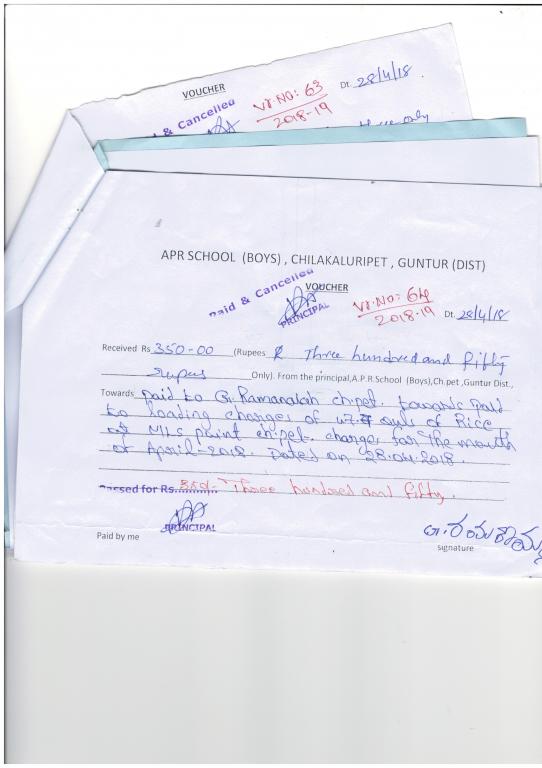 VOUCHER
& Cancelled
Vr.No: 63
2018-19
Dt. 28/4/18
three only
APR SCHOOL (BOYS) , CHILAKALURIPET , GUNTUR (DIST)
Paid & Cancelled
VOUCHER
PRINCIPAL
Vr.No: 64
2018-19
Dt. 28/4/18
Received Rs 350-00 (Rupees Three hundred and fifty
rupees Only). From the principal,A.P.R.School (Boys),Ch.pet ,Guntur Dist.,
Towards paid to G. Ramanaiah ch.pet. towards paid
to loading charges of 47. of Rice
at MLS point ch.pet. charges for the month
of April-2018. Dated on 28.04.2018.
Passed for Rs. 350/- Three hundred and fifty.
PRINCIPAL
Paid by me
signature